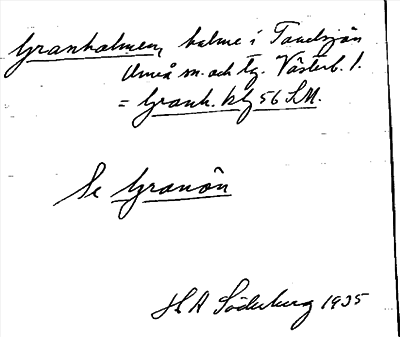 Granholmen, holme i Tavelsjön
Umeå sn. och tg. Västerb. l.
= Granh. kbl 56 S.M.
Se Granön
H A Söderberg 1935